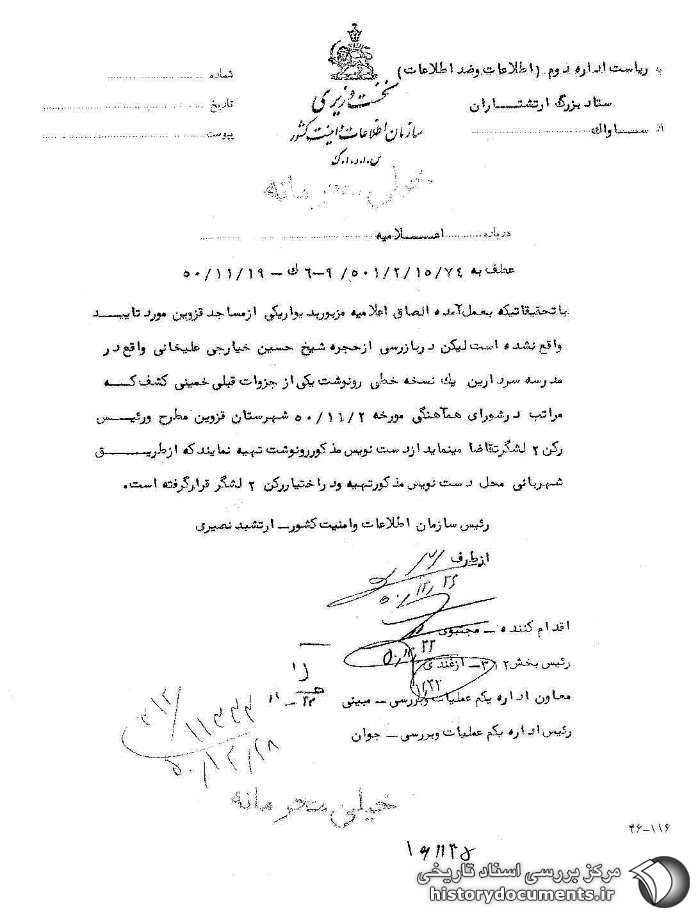 به ریاست اداره دوم (اطلاعات وضد اطلاعات)
ستاد بزرگ ارتشتاران
از ساواك
نخست وزیری
سازمان اطلاعات و امنیت کشور
س.ا.و.ا.ک
شماره
تاریخ
پیوست
خیلی محرمانه
درباره اعلامیه
عطف به ۵۰۱/۲/۱۵/۷۴/ ۹-۶ ك - ۵۰/۱۱/۱۹
باتحقیقاتیکه بعمل‌آمده الصاق اعلامیه مزبوربدیواریکی ازمساجد قزوین مورد تایید
واقع نشده است لیکن دربازرسی ازحجره شیخ حسین خیارجی علیخانی واقع در
مدرسه سردارین يك نسخه خطی رونوشت یکی از جزوات قبلی خمینی کشف که
مراتب درشورای هم‌آهنگی مورخه ۵۰/۱۱/۲ شهرستان قزوین مطرح ورئیس
رکن ۲ لشگرتقاضا مینماید ازدست نویس مذکوررونوشت تهیه نمایند که ازطریق
شهربانی محل دست نویس مذکورتهیه ودراختیاررکن ۲ لشگر قرارگرفته است.
رئیس سازمان اطلاعات وامنیت کشور - ارتشبد نصیری
ازطرف
۵۰/۱۲/۲۶
اقدام کننده - مجتبوی
رئیس بخش ۳۱۲ - ازغندی
معاون اداره یکم عملیات وبررسی - مبینی
رئیس اداره یکم عملیات وبررسی - جوان
۳۱۲/۱۱۳۳۳
۵۰/۱۲/۲۸
خیلی محرمانه
۳۶-۱۱۶
مرکز بررسی اسناد تاریخی
historydocuments.ir